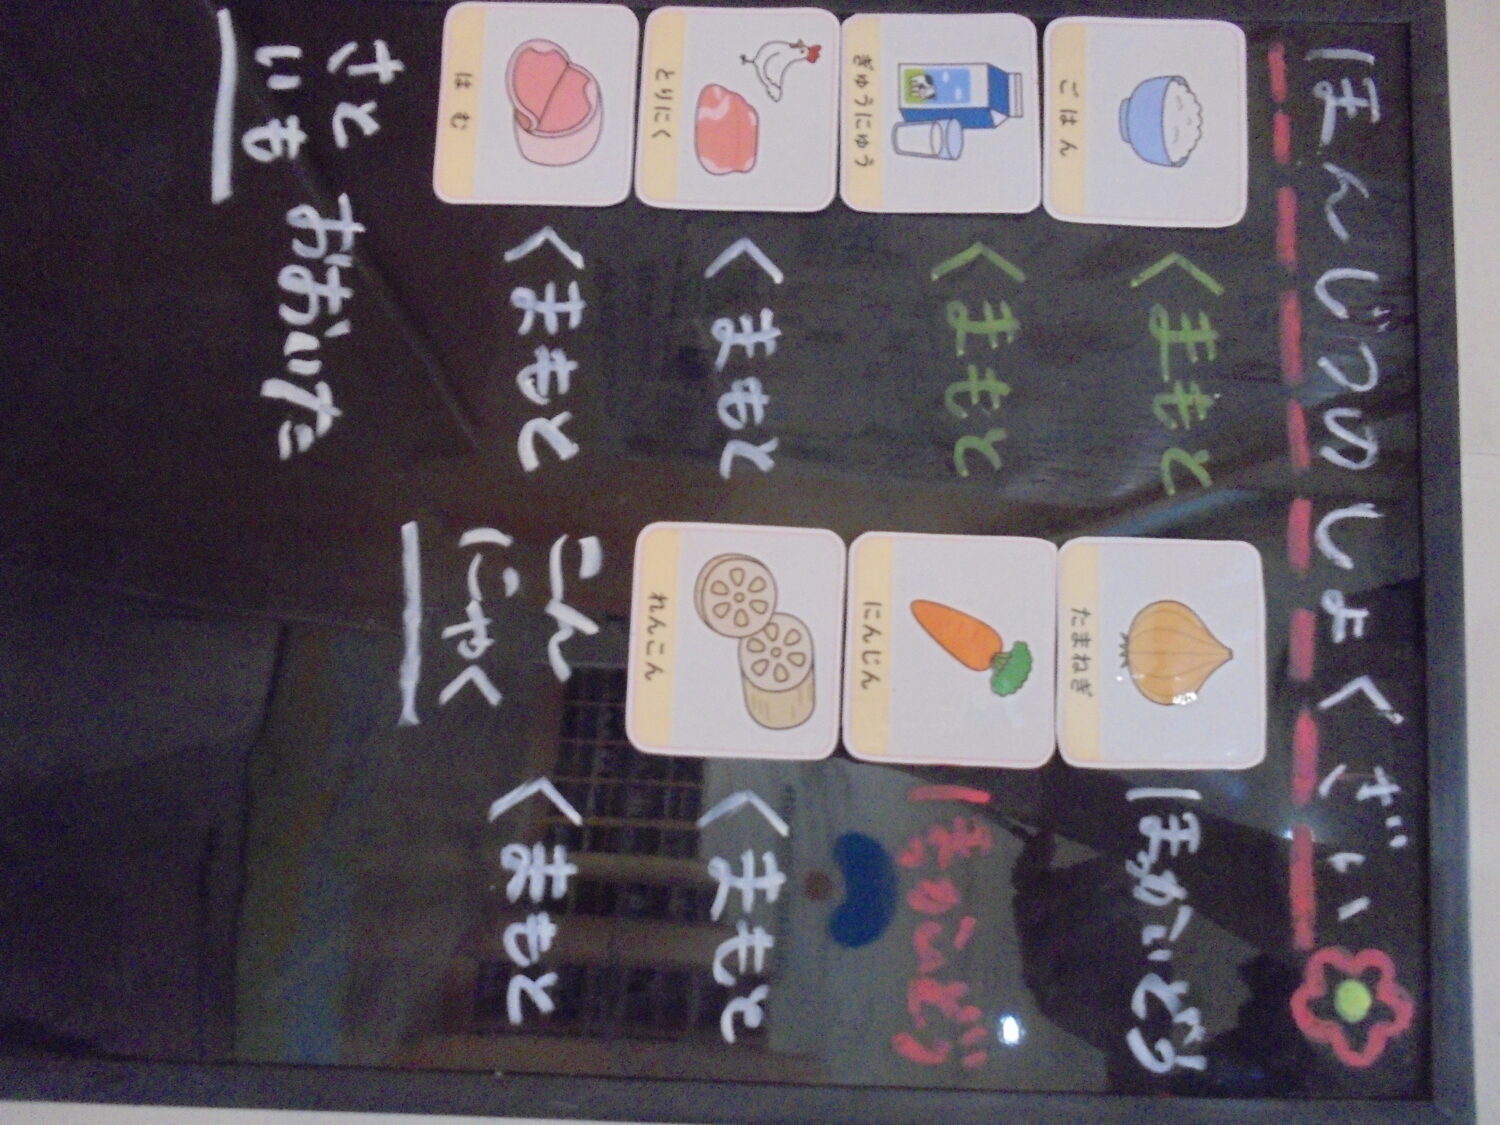 ほんじつのしょくざい
ごはん くまもと
たまねぎ ほっかいどう
ぎゅうにゅう くまもと
にんじん ほっかいどう
とりにく くまもと
れんこん くまもと
はむ くまもと
こんにゃく くまもと
さといも おおいた